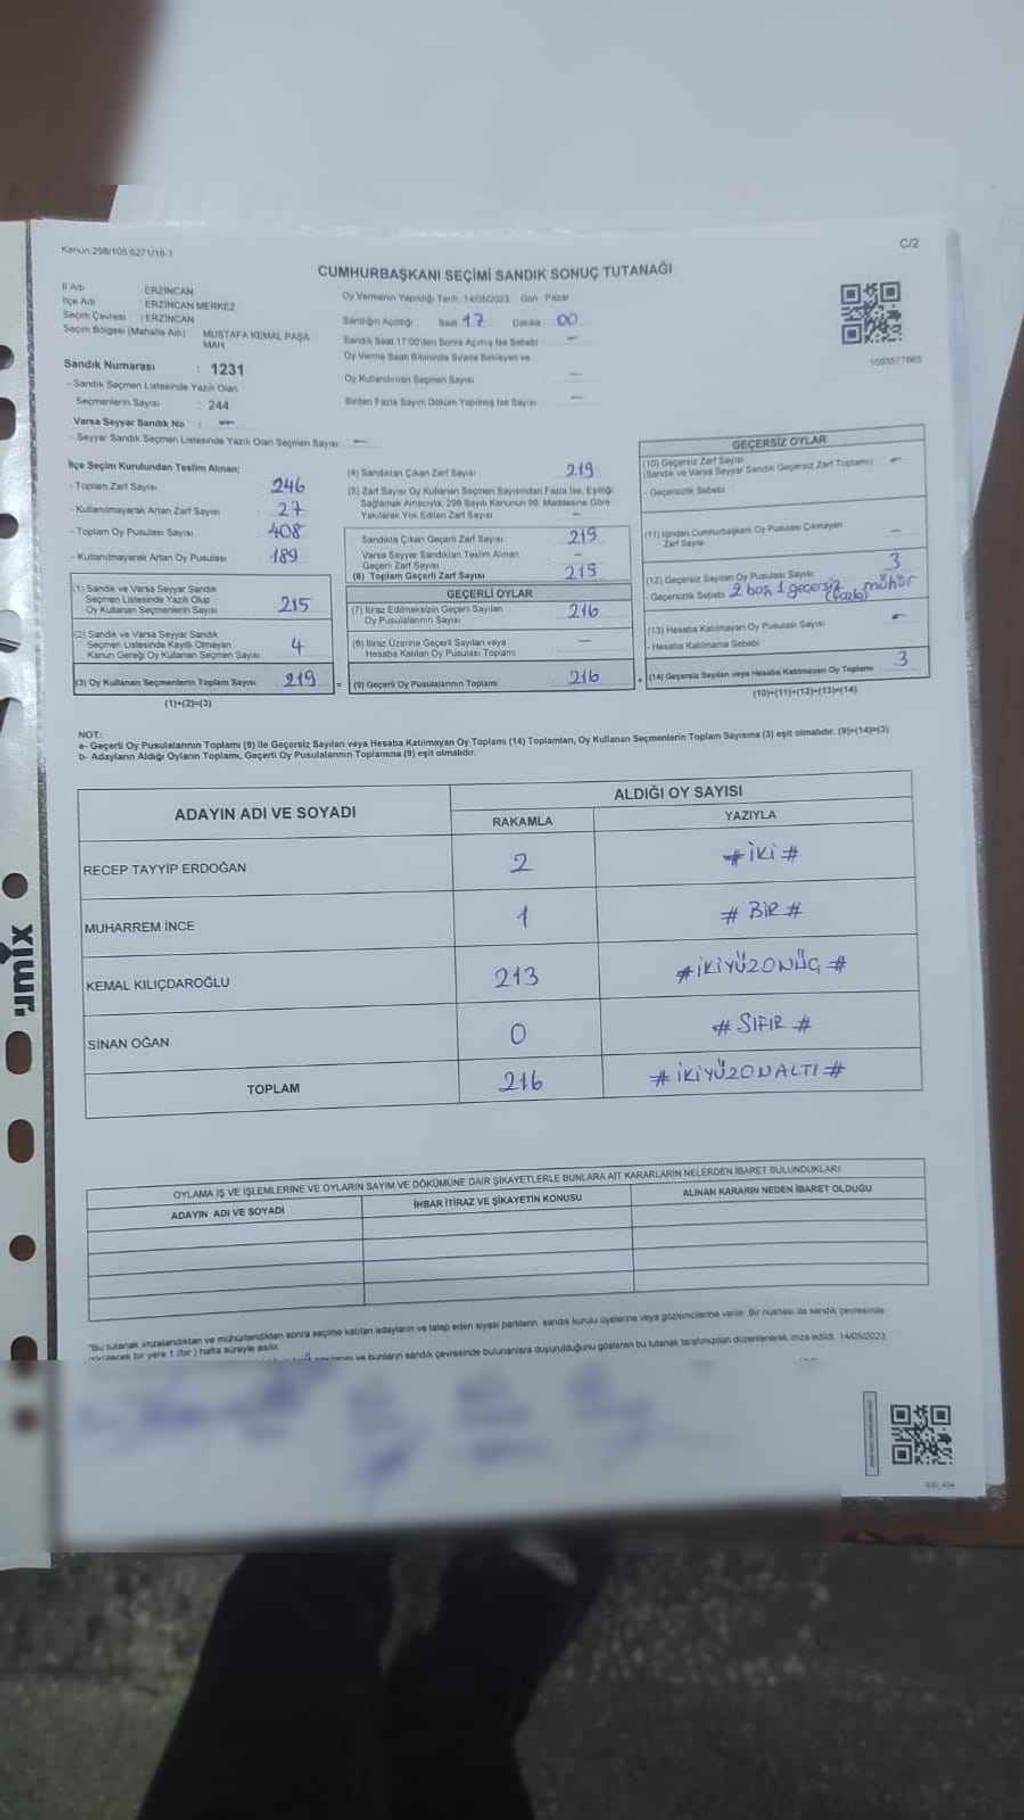 Kanun:298/105 6271/18-1
C/2
CUMHURBAŞKANI SEÇİMİ SANDIK SONUÇ TUTANAĞI
İl Adı : ERZİNCAN
İlçe Adı : ERZİNCAN MERKEZ
Seçim Çevresi : ERZİNCAN
Seçim Bölgesi (Mahalle Adı) : MUSTAFA KEMAL PAŞA MAH
Sandık Numarası : 1231
- Sandık Seçmen Listesinde Yazılı Olan
Seçmenlerin Sayısı : 244
Varsa Seyyar Sandık No : -
- Seyyar Sandık Seçmen Listesinde Yazılı Olan Seçmen Sayısı : -
Oy Vermenin Yapıldığı Tarih : 14/05/2023 Gün : Pazar
Sandığın Açıldığı Saat 17 Dakika 00
Sandık Saat 17:00'den Sonra Açılmış İse Sebebi -
Oy Verme Saati Bitiminde Sırada Bekleyen ve
Oy Kullandırılan Seçmen Sayısı -
Birden Fazla Sayım Döküm Yapılmış İse Sayısı -
İlçe Seçim Kurulundan Teslim Alınan;
- Toplam Zarf Sayısı 246
- Kullanılmayarak Artan Zarf Sayısı 27
- Toplam Oy Pusulası Sayısı 408
- Kullanılmayarak Artan Oy Pusulası 189
(1) Sandık ve Varsa Seyyar Sandık
Seçmen Listesinde Yazılı Olup
Oy Kullanan Seçmenlerin Sayısı 215
(2) Sandık ve Varsa Seyyar Sandık
Seçmen Listesinde Kayıtlı Olmayan
Kanun Gereği Oy Kullanan Seçmen Sayısı 4
(3) Oy Kullanan Seçmenlerin Toplam Sayısı 219
(1)+(2)=(3)
(4) Sandıktan Çıkan Zarf Sayısı 219
(5) Zarf Sayısı Oy Kullanan Seçmen Sayısından Fazla İse, Eşitliği
Sağlamak Amacıyla, 298 Sayılı Kanunun 98. Maddesine Göre
Yakılarak Yok Edilen Zarf Sayısı -
Sandıkta Çıkan Geçerli Zarf Sayısı 219
Varsa Seyyar Sandıktan Teslim Alınan
Geçerli Zarf Sayısı -
(6) Toplam Geçerli Zarf Sayısı 219
GEÇERLİ OYLAR
(7) İtiraz Edilmeksizin Geçerli Sayılan
Oy Pusulalarının Sayısı 216
(8) İtiraz Üzerine Geçerli Sayılan veya
Hesaba Katılan Oy Pusulası Toplamı -
= (9) Geçerli Oy Pusulalarının Toplamı 216
GEÇERSİZ OYLAR
(10) Geçersiz Zarf Sayısı
(Sandık ve Varsa Seyyar Sandık Geçersiz Zarf Toplamı) -
- Geçersizlik Sebebi
(11) İçinden Cumhurbaşkanı Oy Pusulası Çıkmayan
Zarf Sayısı -
(12) Geçersiz Sayılan Oy Pusulası Sayısı 3
- Geçersizlik Sebebi 2 boş 1 geçersiz (fazla) mühür
(13) Hesaba Katılmayan Oy Pusulası Sayısı -
- Hesaba Katılmama Sebebi
+ (14) Geçersiz Sayılan veya Hesaba Katılmayan Oy Toplamı 3
(10)+(11)+(12)+(13)=(14)
NOT:
a- Geçerli Oy Pusulalarının Toplamı (9) ile Geçersiz Sayılan veya Hesaba Katılmayan Oy Toplamı (14) Toplamları, Oy Kullanan Seçmenlerin Toplam Sayısına (3) eşit olmalıdır. (9)+(14)=(3)
b- Adayların Aldığı Oyların Toplamı, Geçerli Oy Pusulalarının Toplamına (9) eşit olmalıdır.
ADAYIN ADI VE SOYADI ALDIĞI OY SAYISI
RAKAMLA YAZIYLA
RECEP TAYYİP ERDOĞAN 2 # İKİ #
MUHARREM İNCE 1 # BİR #
KEMAL KILIÇDAROĞLU 213 # İKİYÜZONÜÇ #
SİNAN OĞAN 0 # SIFIR #
TOPLAM 216 # İKİYÜZONALTI #
OYLAMA İŞ VE İŞLEMLERİNE VE OYLARIN SAYIM VE DÖKÜMÜNE DAİR ŞİKAYETLERLE BUNLARA AİT KARARLARIN NELERDEN İBARET BULUNDUKLARI
ADAYIN ADI VE SOYADI İHBAR İTİRAZ VE ŞİKAYETİN KONUSU ALINAN KARARIN NEDEN İBARET OLDUĞU
"Bu tutanak imzalandıktan ve mühürlendikten sonra seçime katılan adayların ve talep eden siyasi partilerin sandık kurulu üyelerine veya gözlemcilerine verilir. Bir nüshası da sandık çevresinde
görülecek bir yere 1 (bir) hafta süreyle asılır.
ve bunların sandık çevresinde bulunanlara duyurulduğunu gösteren bu tutanak tarafımızdan düzenlenerek imza edildi. 14/05/2023